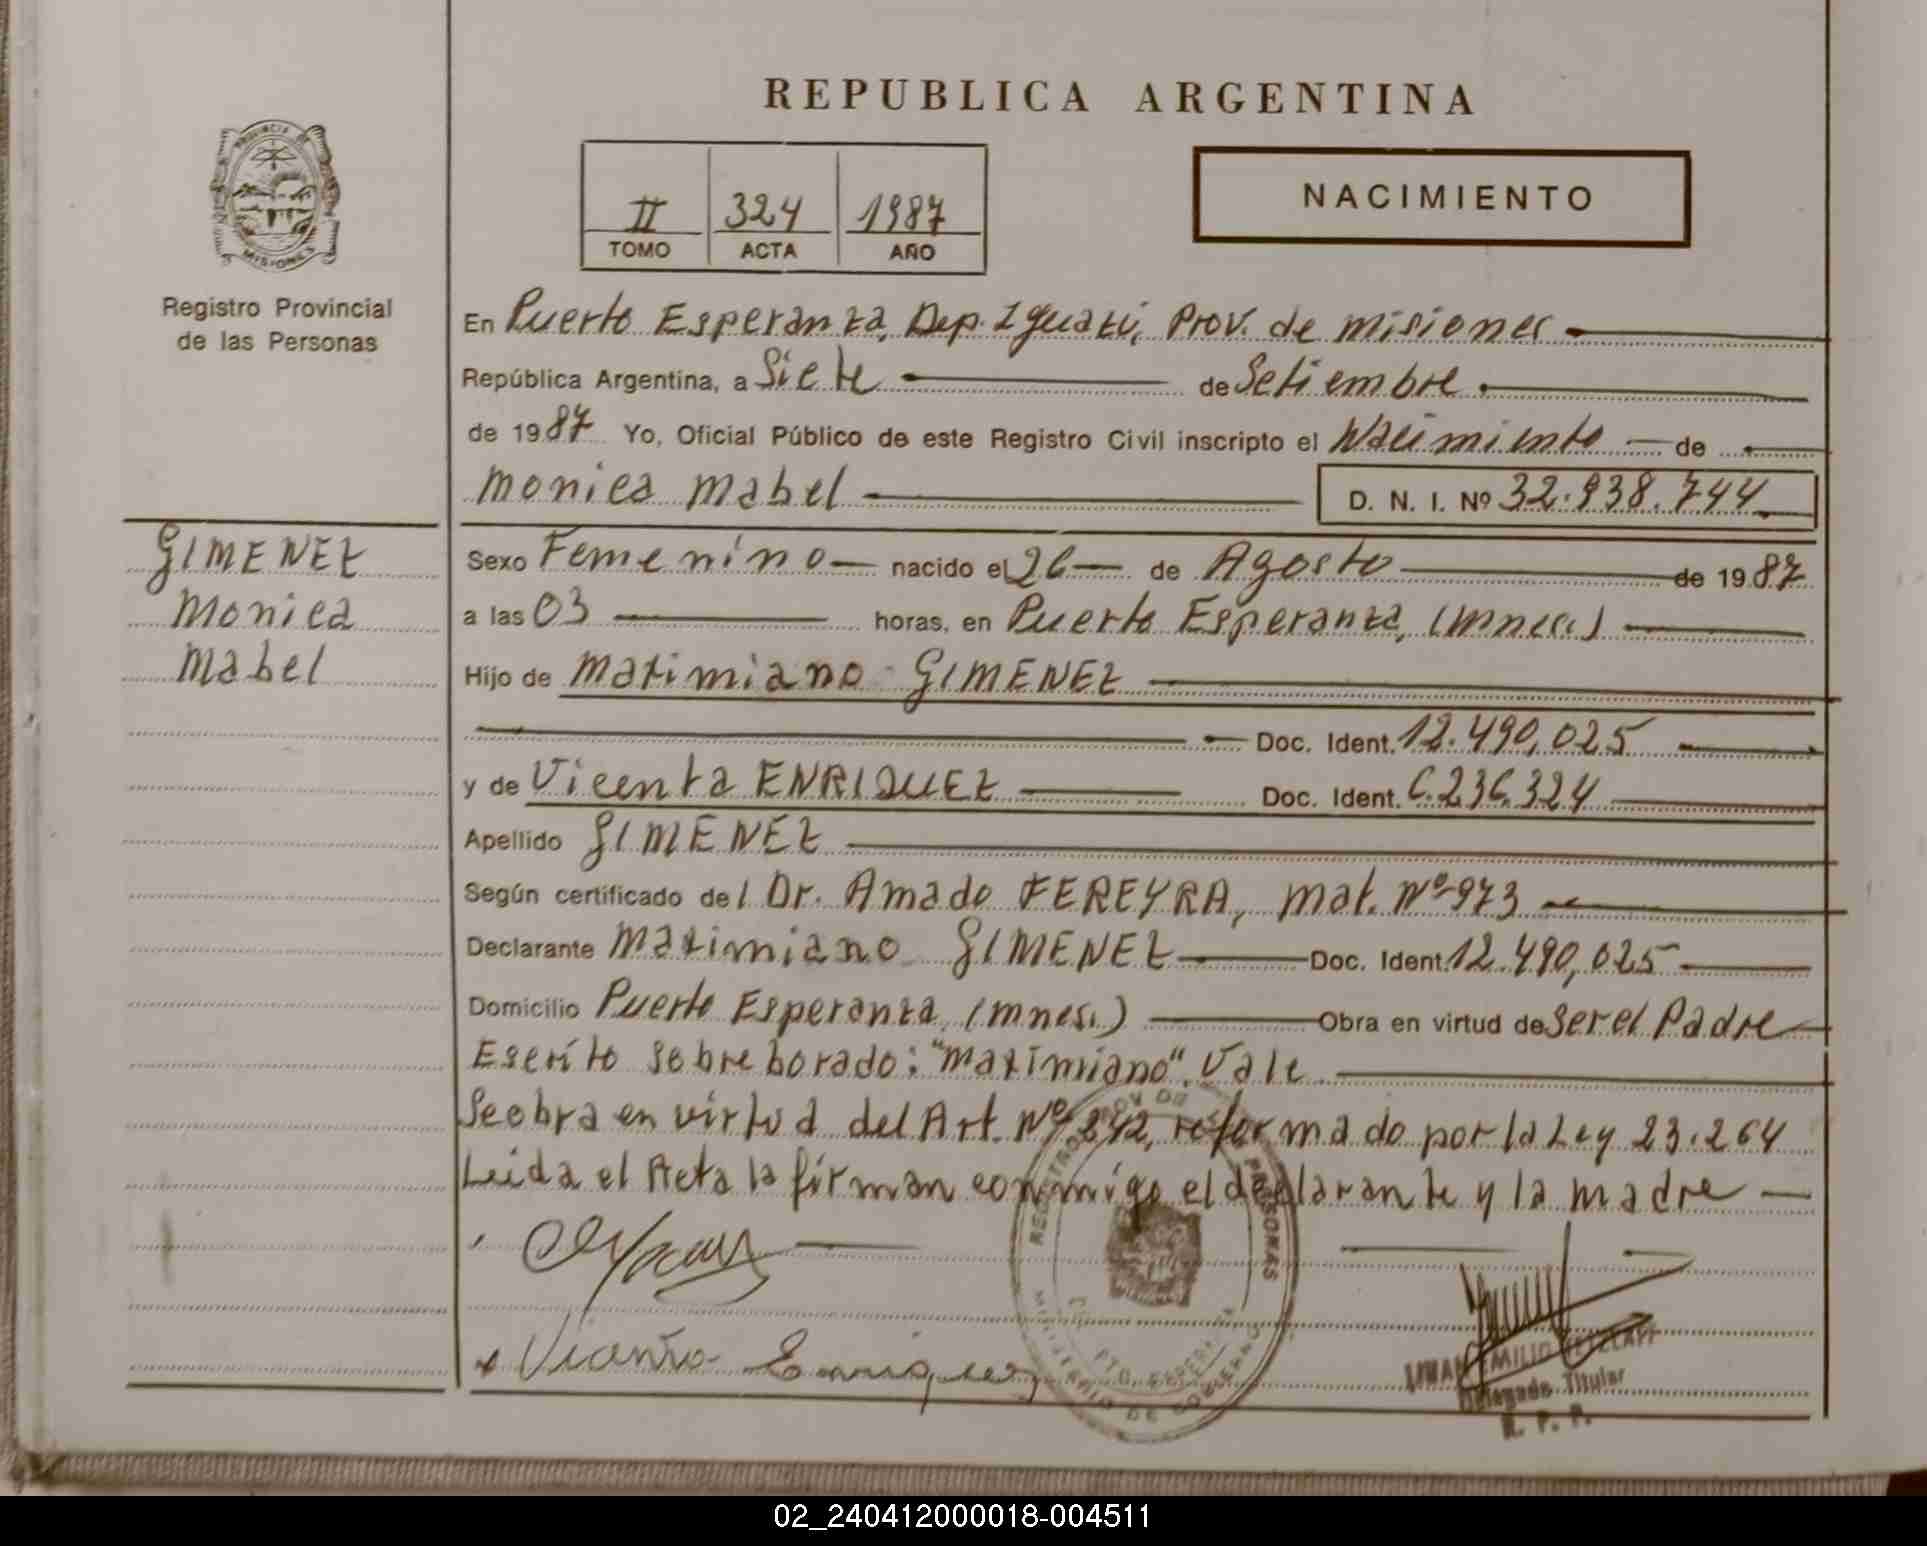 REPUBLICA ARGENTINA
PROVINCIA DE
MISIONES
Registro Provincial
de las Personas
II 324 1987
TOMO ACTA AÑO
NACIMIENTO
En Puerto Esperanza, Dep. Iguazú, Prov. de Misiones
República Argentina, a Siete de Setiembre
de 1987 Yo, Oficial Público de este Registro Civil inscripto el Nacimiento de
Monica Mabel D. N. I. Nº 32.938.744
GIMENEZ
Monica
Mabel
Sexo Femenino nacido el 26 de Agosto de 1987
a las 03 horas, en Puerto Esperanza, (Mnes.)
Hijo de Maximiano GIMENEZ
Doc. Ident. 12.490,025
y de Vicenta ENRIQUEZ Doc. Ident. 6.236.324
Apellido GIMENEZ
Según certificado del Dr. Amado FEREYRA, Mat. Nº 973
Declarante Maximiano GIMENEZ Doc. Ident. 12.490,025
Domicilio Puerto Esperanza, (Mnes.) Obra en virtud de ser el Padre
Escrito sobre borado: "Maximiano". Vale
Se obra en virtud del Art. Nº 242, reformado por la Ley 23.264
Leida el Acta la firman conmigo el declarante y la madre
Enriquez
EMILIO
Delegado Titular
R. P. P.
REGISTRO PROV DE PERSONAS
MINISTERIO DE GOBIERNO
PTO. ESPERANZA
02_240412000018-004511